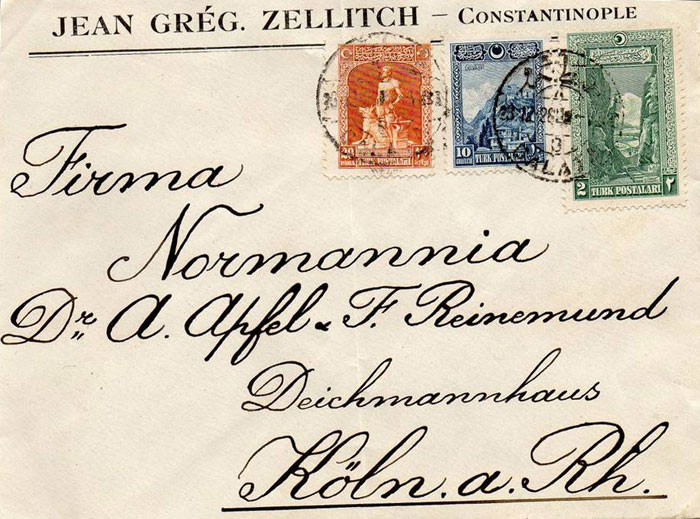 JEAN GRÉG. ZELLITCH – CONSTANTINOPLE
20 TURK POSTALARI
10 GHROUCH TURK POSTALARI
2 TURK POSTALARI ٢
Firma
Normannia
Dr. A. Apfel & F. Reinemund
Deichmannhaus
Köln. a. Rh.